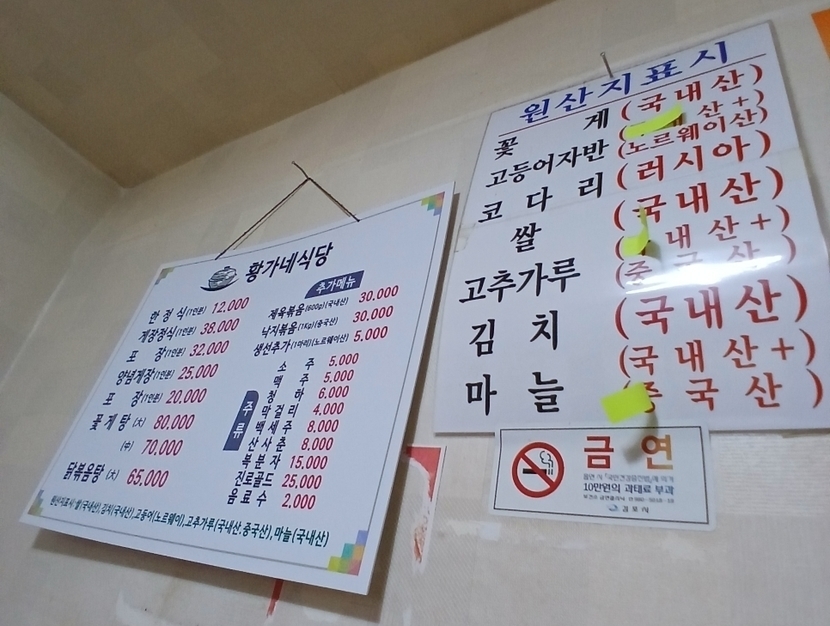 황가네식당
한정식(1인분) 12,000
게장정식(1인분) 38,000
포 장(1인분) 32,000
양념게장(1인분) 25,000
포 장(1인분) 20,000
꽃게탕(大) 80,000
(中) 70,000
닭볶음탕(大) 65,000
추가메뉴
제육볶음(600g)(국내산) 30.000
낙지볶음(1Kg)(중국산) 30.000
생선추가(1마리)(노르웨이산) 5.000
주류
소 주 5.000
맥 주 5.000
청 하 6.000
막걸리 4.000
백세주 8,000
산사춘 8,000
복분자 15,000
진로골드 25,000
음료수 2,000
원산지표시:쌀(국내산),김치(국내산),고등어(노르웨이),고추가루(국내산.중국산),마늘(국내산)
원산지표시
꽃 게 (국내산)
고등어자반 산+)
(노르웨이산)
코다리 (러시아)
쌀 (국내산)
고추가루 내산+)
(중국산)
김 치 (국내산)
마 늘 (국내산+)
중국산)
금 연
10만원의 과태료 부과
김포시